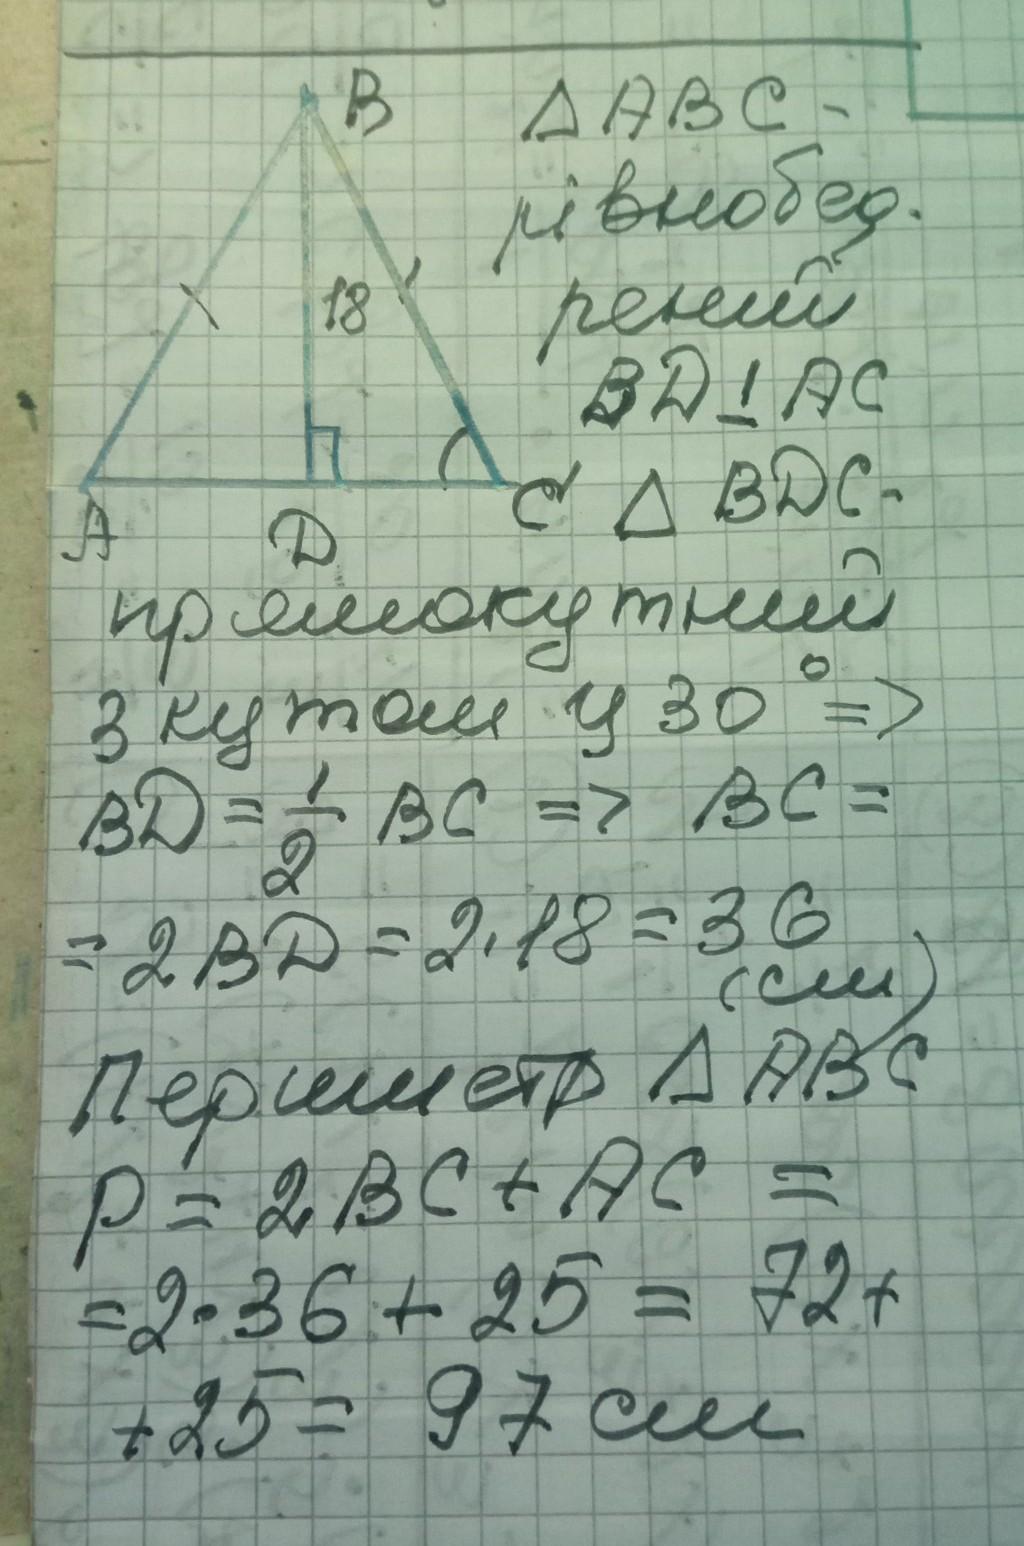 B
△ABC -
рівнобед.
18
рений
BD⊥AC
A
D
C
△ BDC-
прямокутний
з кутом у 30° =>
BD = 1/2 BC => BC =
= 2BD = 2·18 = 36
(см)
Периметр △ABC
P = 2BC + AC =
= 2·36 + 25 = 72+
+25 = 97 см